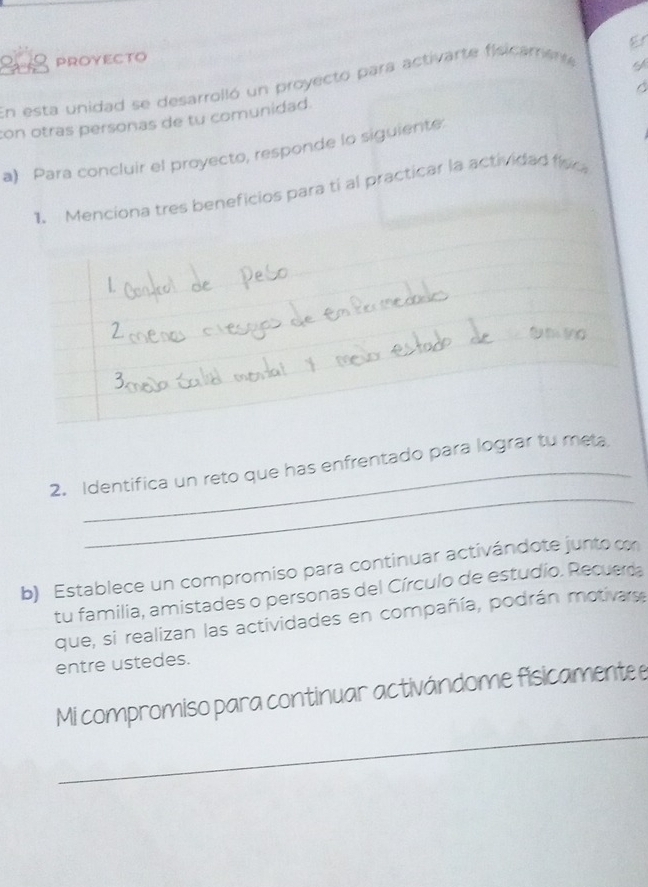 PROYECTO
En esta unidad se desarrolló un proyecto para activarte físicamente
con otras personas de tu comunidad.
a) Para concluir el proyecto, responde lo siguiente:
1. Menciona tres beneficios para ti al practicar la actividad física
1 Control de Peso
2 menos riesgos de enfermedades
3 mejor salud mental y mejor estado de animo
2. Identifica un reto que has enfrentado para lograr tu meta.
b) Establece un compromiso para continuar activándote junto con
tu familia, amistades o personas del Círculo de estudio. Recuerda
que, si realizan las actividades en compañía, podrán motivarse
entre ustedes.
Mi compromiso para continuar activándome físicamente e